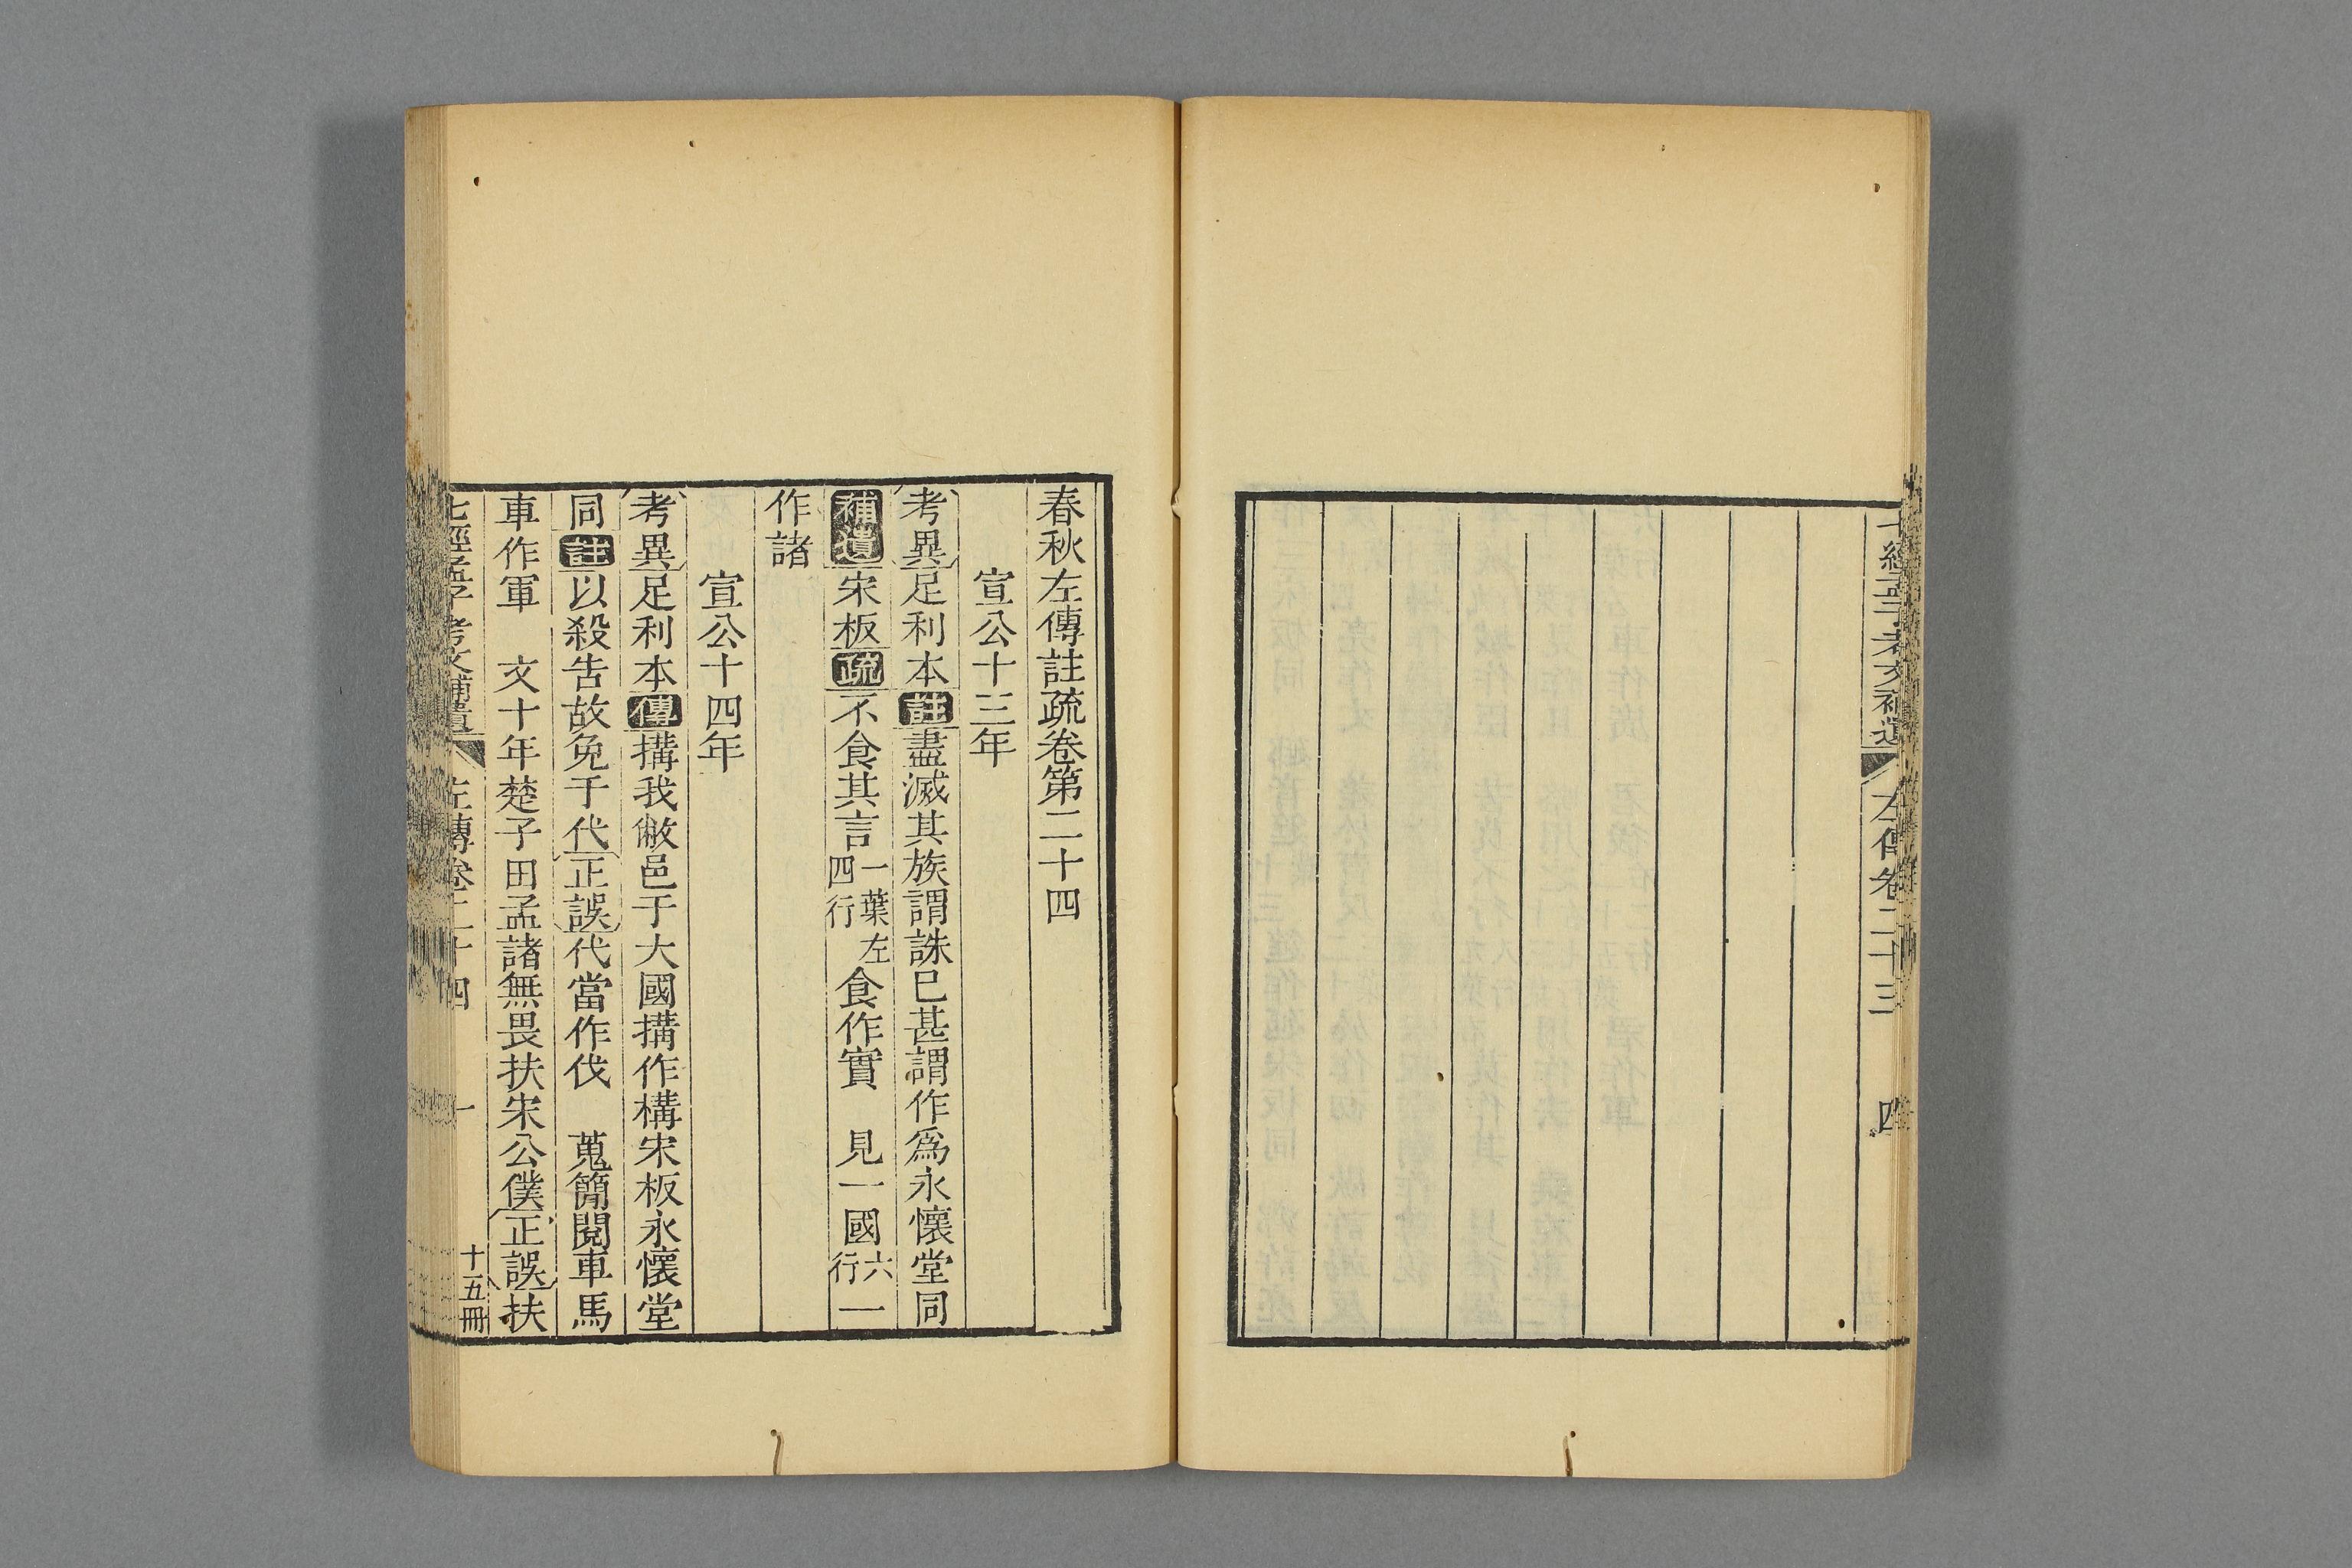 七經孟子考文補遺 左傳卷二十三 四
春秋左傳註疏卷第二十四
宣公十三年
考異足利本註盡滅其族謂誅已甚謂作爲永懷堂同
補遺宋板疏不食其言一葉左四行食作實 見一國六行一
作諸
宣公十四年
考異足利本傳搆我敝邑于大國搆作構宋板永懷堂
同註以殺告故免于代正誤代當作伐 蒐簡閱車馬
車作軍 文十年楚子田孟諸無畏扶宋公僕正誤扶
七經孟子考文補遺 左傳卷二十四 一 十五冊